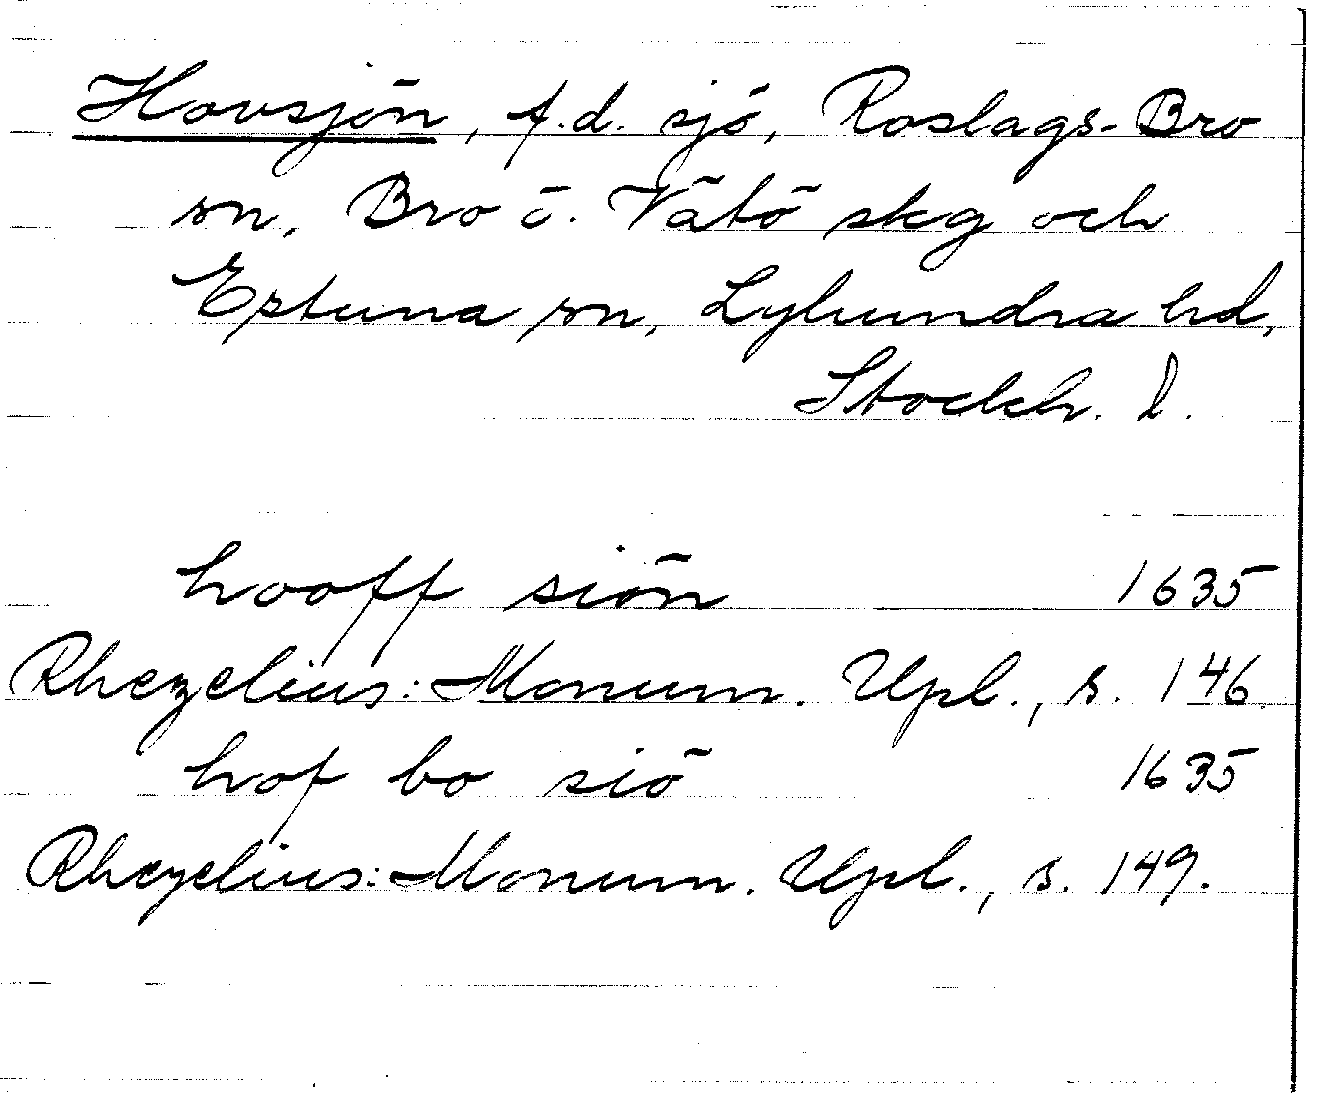 Hovsjön, f.d. sjö, Roslags-Bro
sn, Bro o. Vätö skg och
Estuna sn, Lyhundra hd,
Stockh. l.
hooff siön 1635
Rhezelius: Monum. Upl., s. 146.
hof bo siö 1635
Rhezelius: Monum. Upl., s. 149.